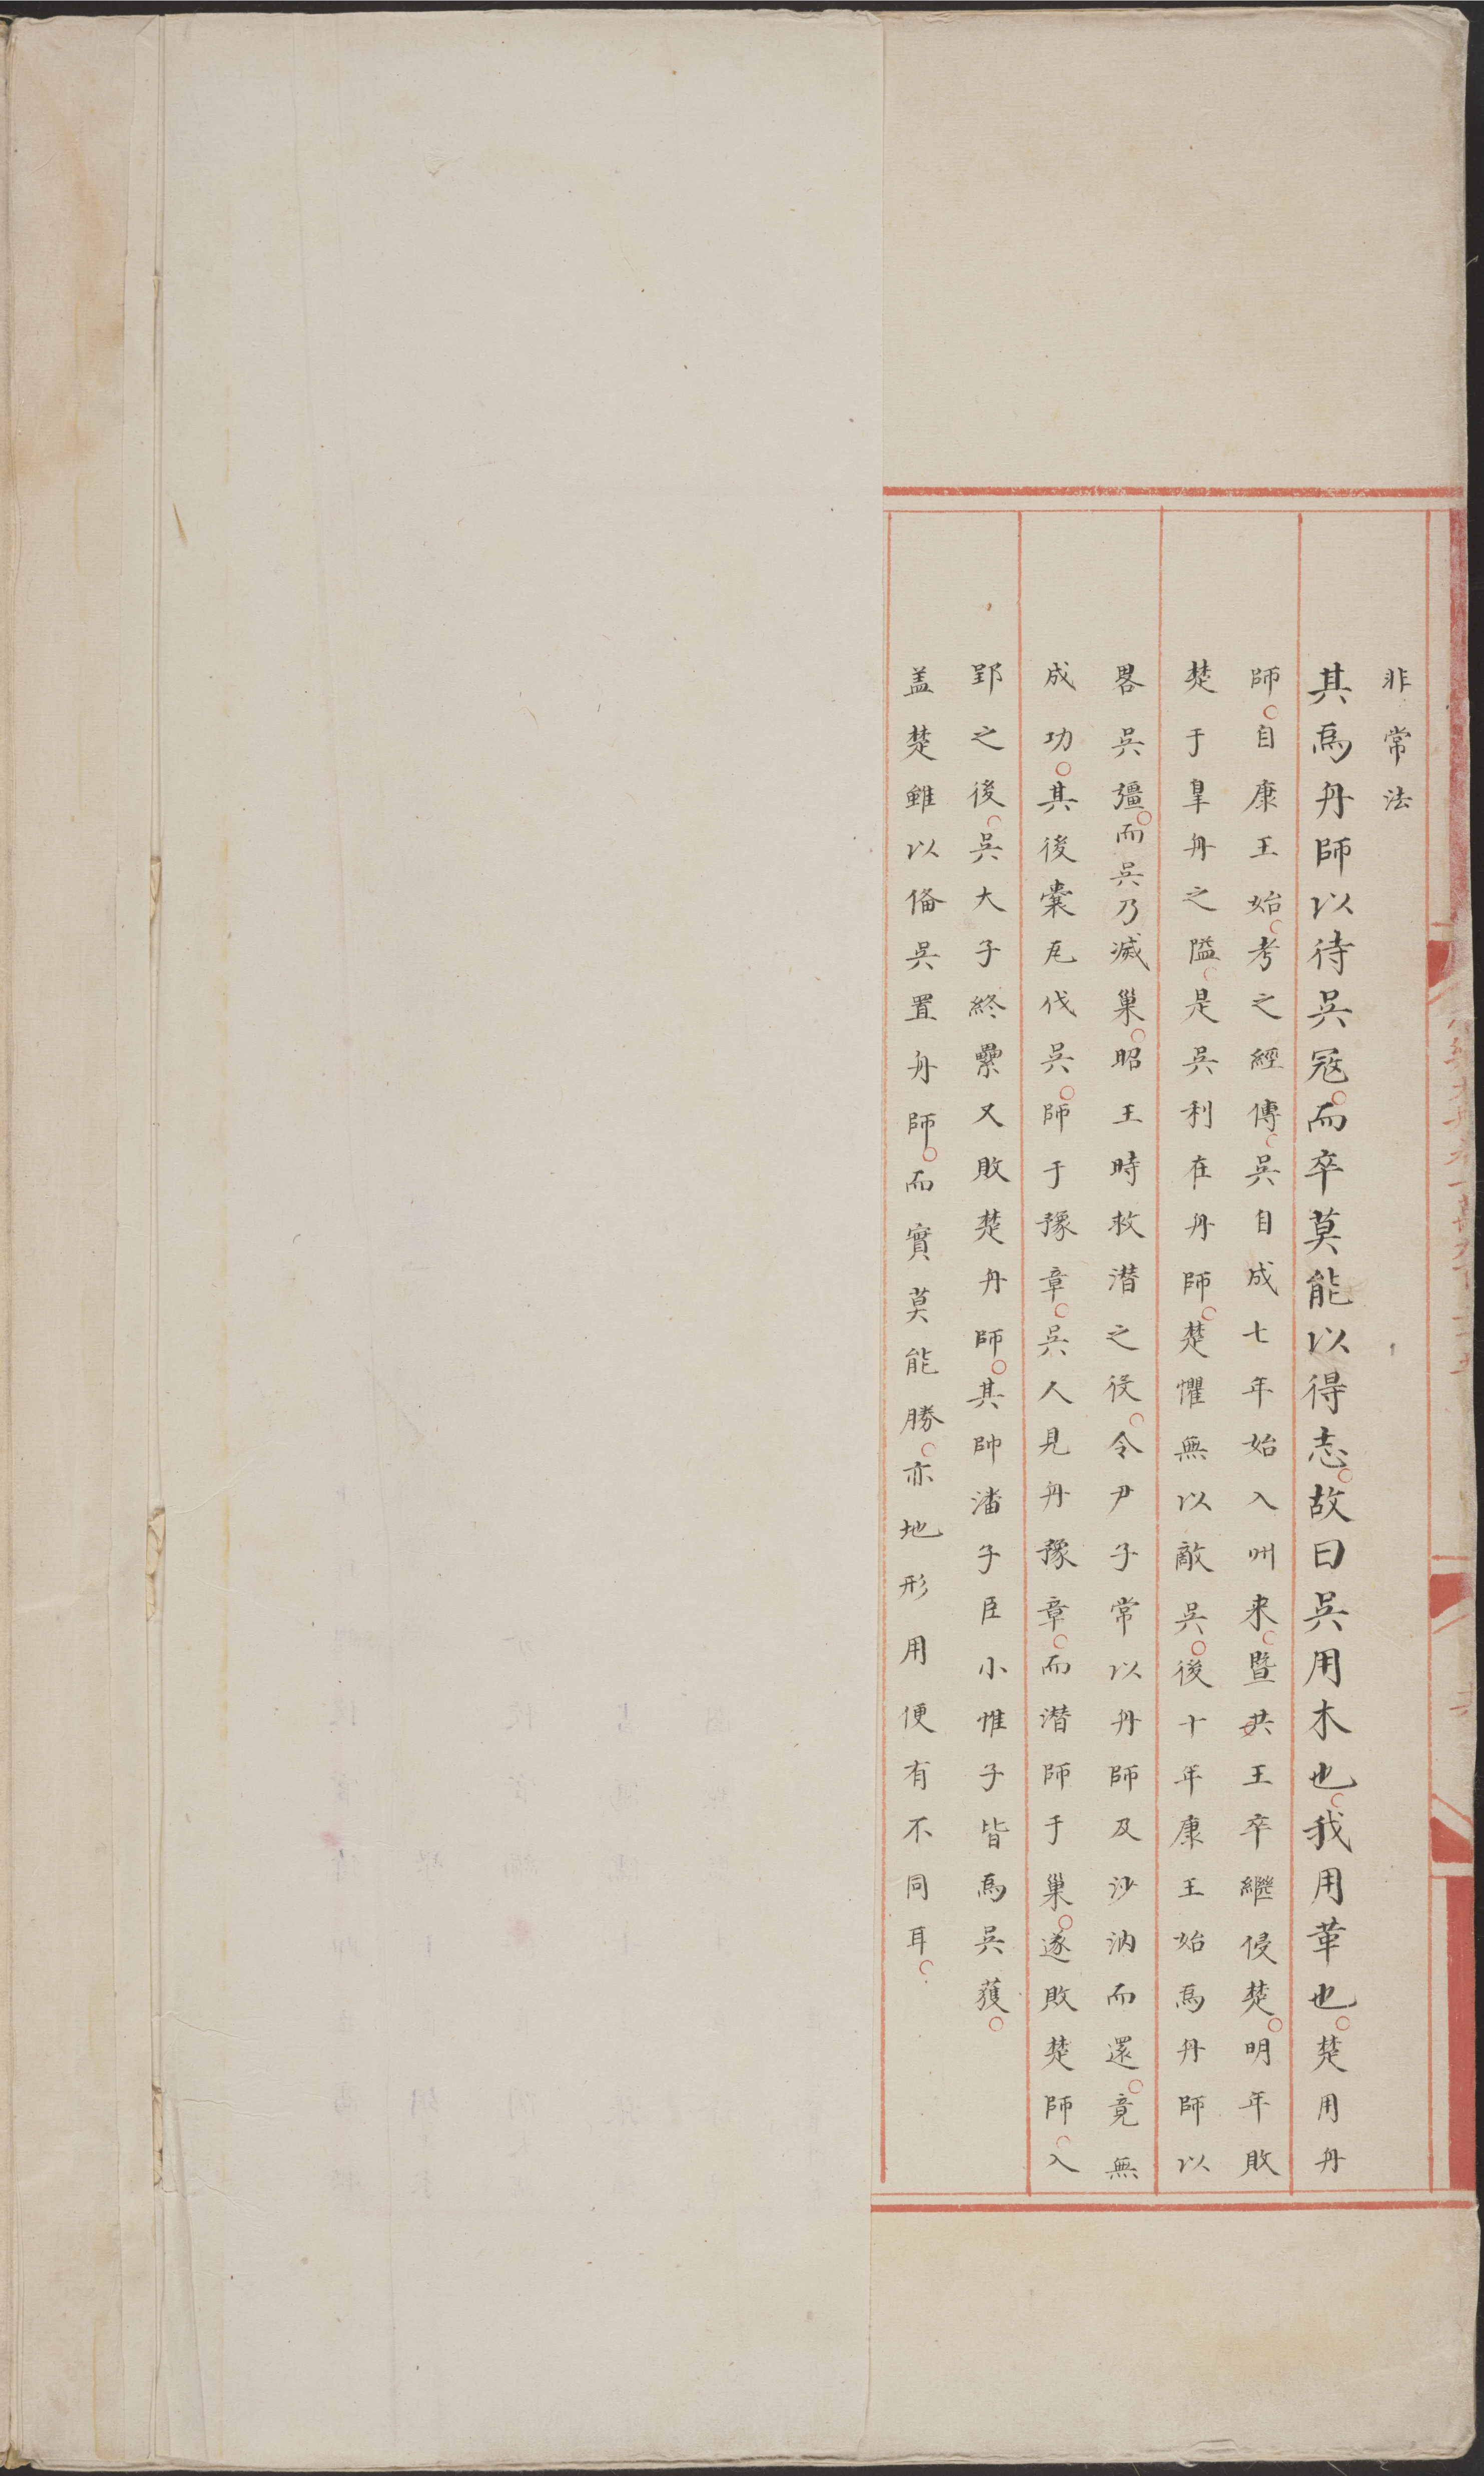 非常法
其爲舟師以待吳冦而卒莫能以得志故曰吳用木也我用革也楚用舟
師自康王始考之經傳吳自成七年始入州来暨共王卒繼侵楚明年敗
楚于皐舟之隘是吳利在舟師楚懼無以敵吳後十年康王始爲舟師以
畧吳疆而吳乃滅巢昭王時救潜之役令尹子常以舟師及沙汭而還竟無
成功其後囊瓦伐吳師于豫章吳人見舟豫章而潜師于巢遂敗楚師入
郢之後吳大子終纍又敗楚舟師其帥潘子臣小惟子皆爲吳獲
盖楚雖以俻吳置舟師而實莫能勝亦地形用便有不同耳